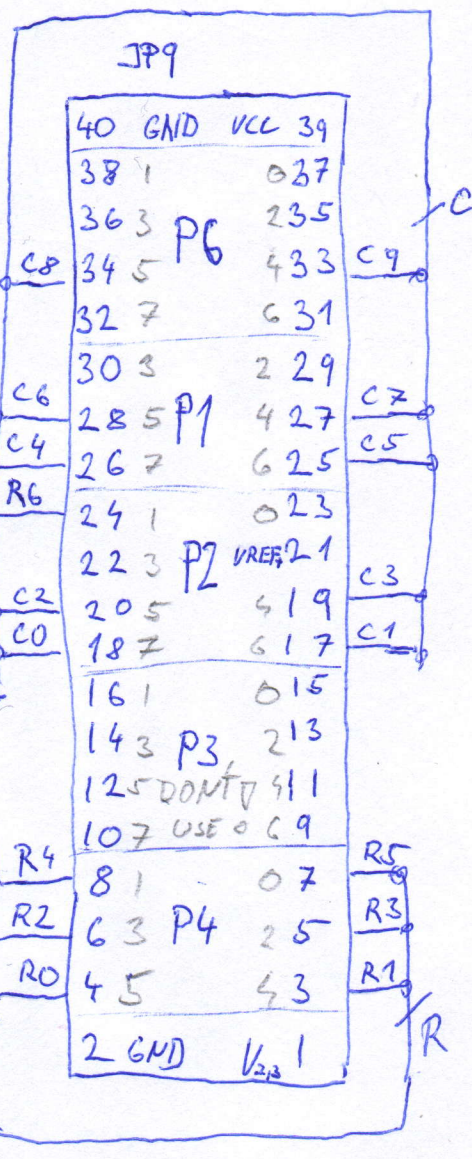 JP9
40 GND VCC 39
38 1 0 37
C
36 3 P6 2 35
C8 34 5 4 33 C9
32 7 6 31
30 3 2 29
C6 28 5 P1 4 27 C7
C4 26 7 6 25 C5
R6 24 1 0 23
22 3 P2 VREF 21
C2 20 5 4 19 C3
C0 18 7 6 17 C1
16 1 0 15
14 3 P3 2 13
12 5 DON'T 4 11
10 7 USE 6 9
R4 8 1 0 7 R5
R2 6 3 P4 2 5 R3
R0 4 5 4 3 R1
R
2 GND V2,3 1